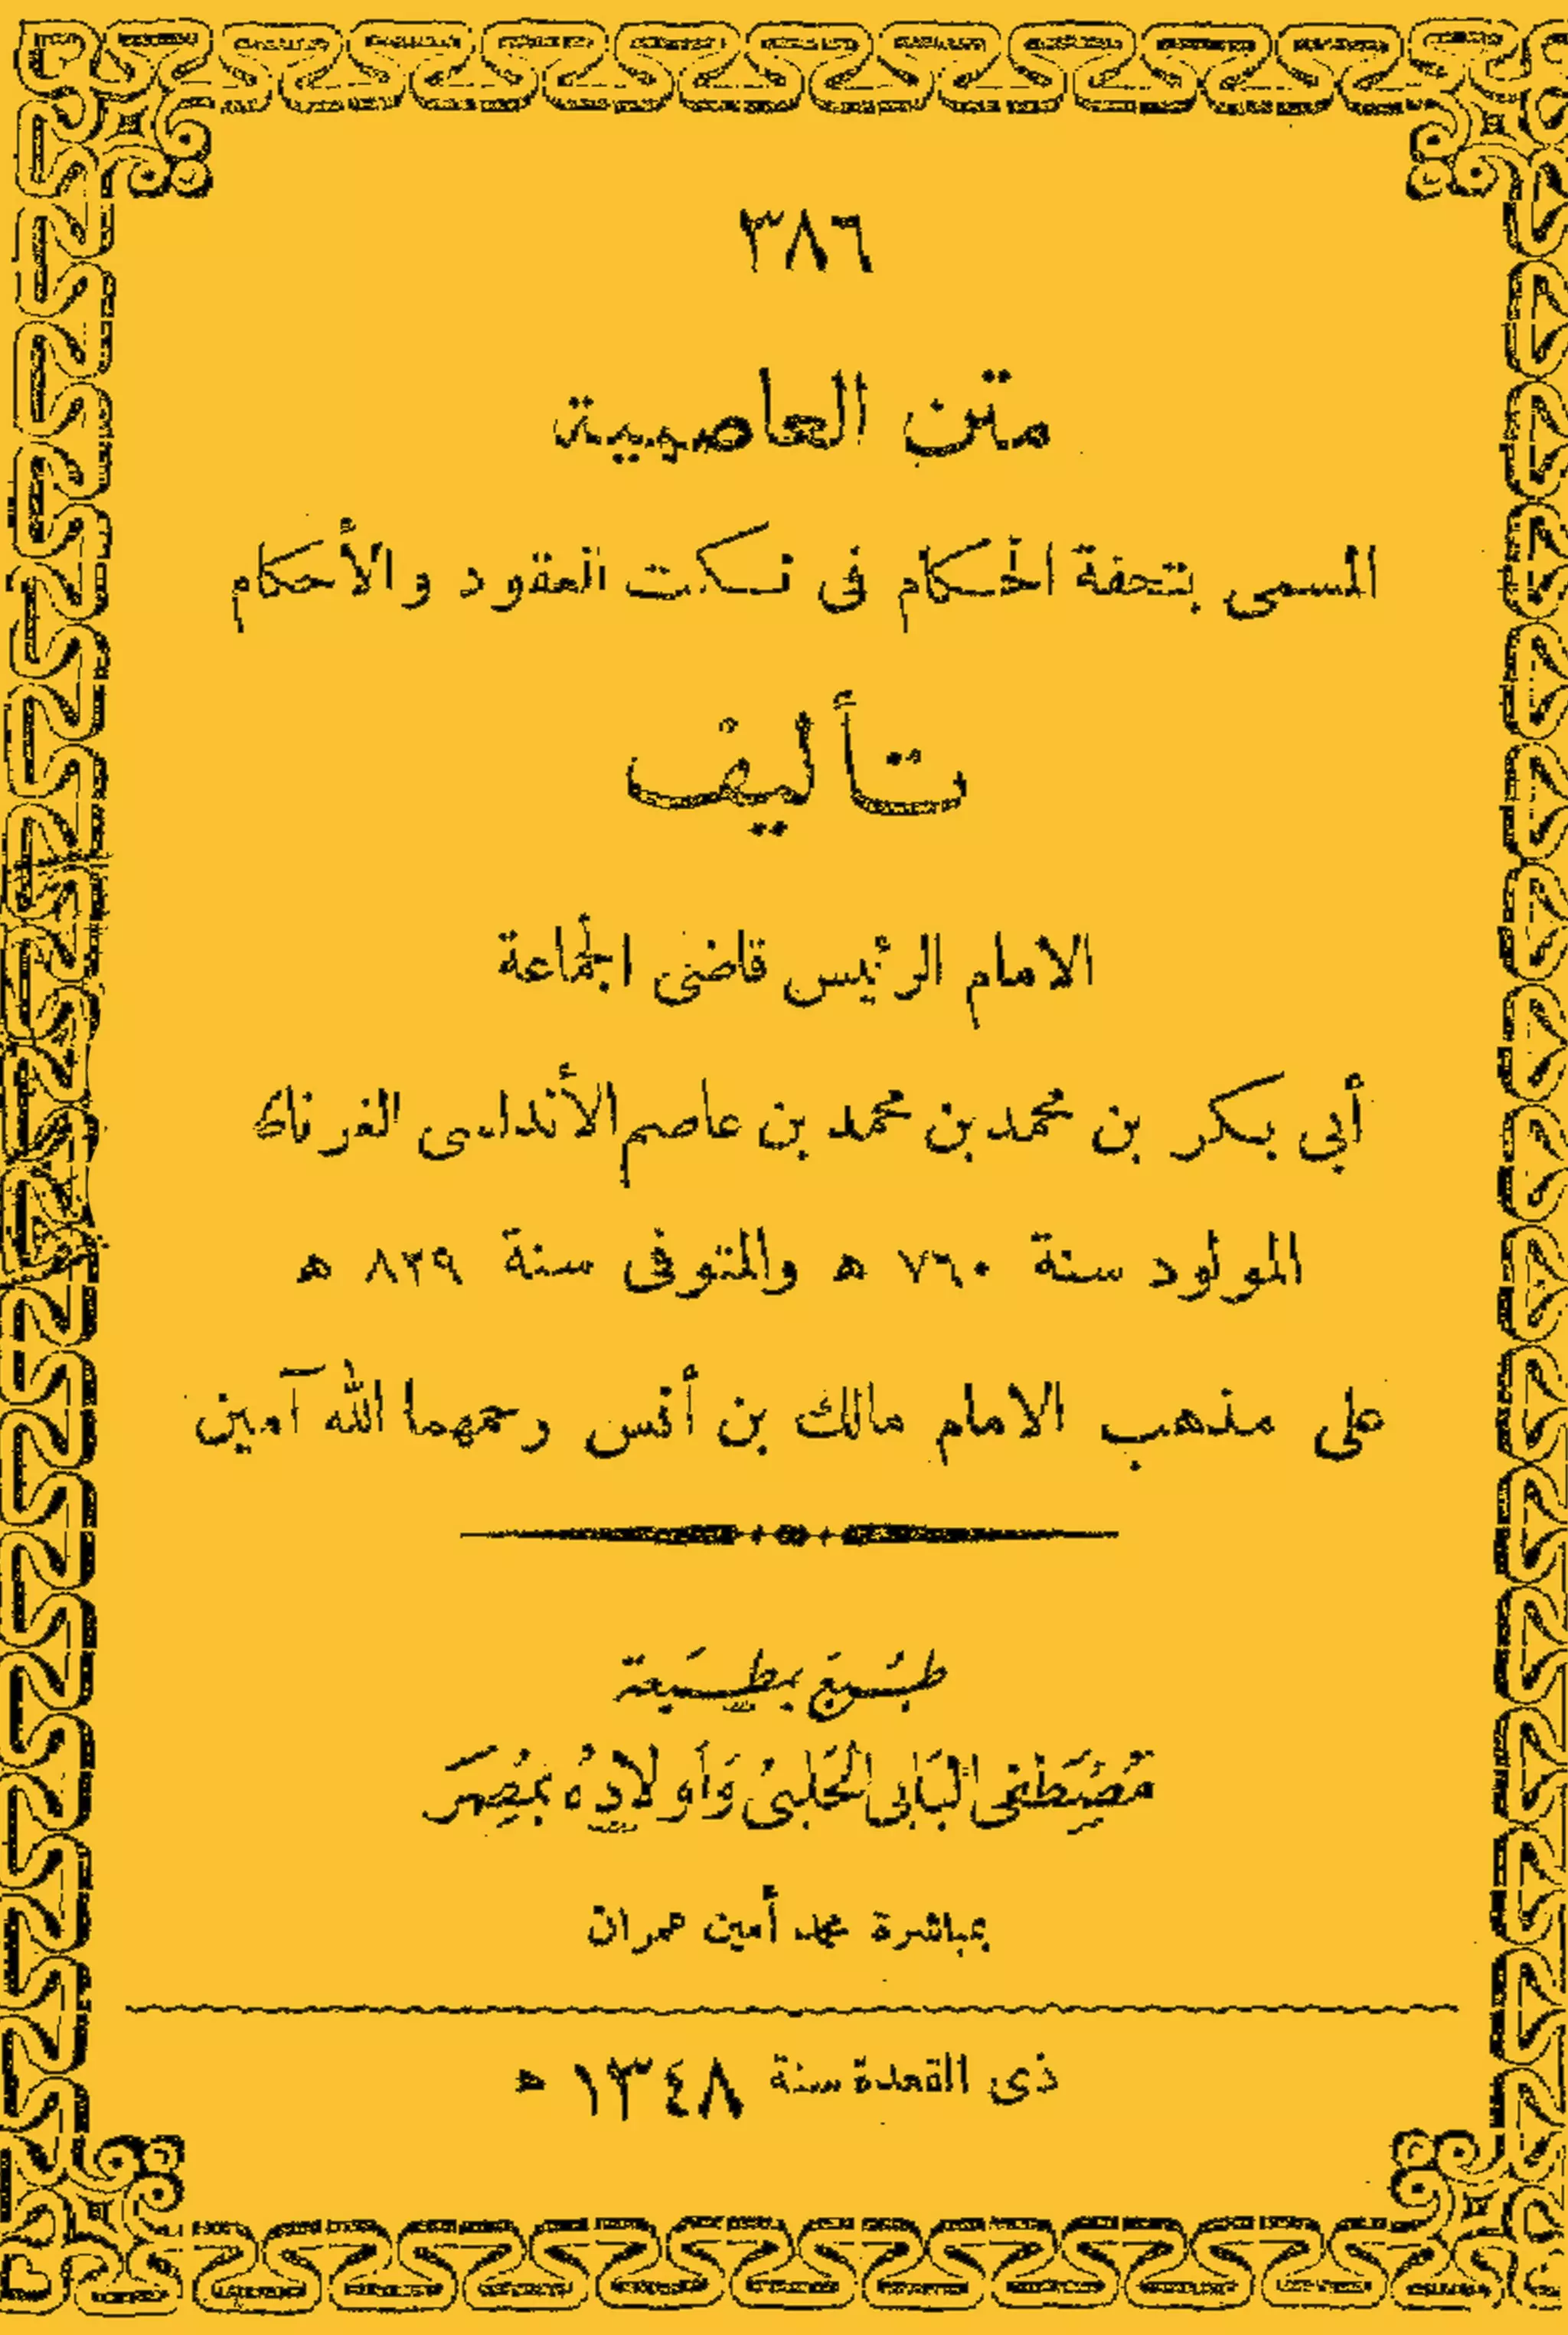 ٣٨٦
متن العاصمية
المسمى بتحفة الحكام فى نكت العقود والأحكام
تأليف
الامام الرئيس قاضى الجماعة
أبي بكر بن محمد بن محمد بن عاصم الأندلسى الغرناطى
المولود سنة ٧٦٠ ه والمتوفى سنة ٨٢٩ ه
على مذهب الامام مالك بن أنس رحمهما الله آمين
طبع بمطبعة
مصطفى البابى الحلبى وأولاده بمصر
بمباشرة محمد أمين عمران
ذى القعدة سنة ١٣٤٨ ه